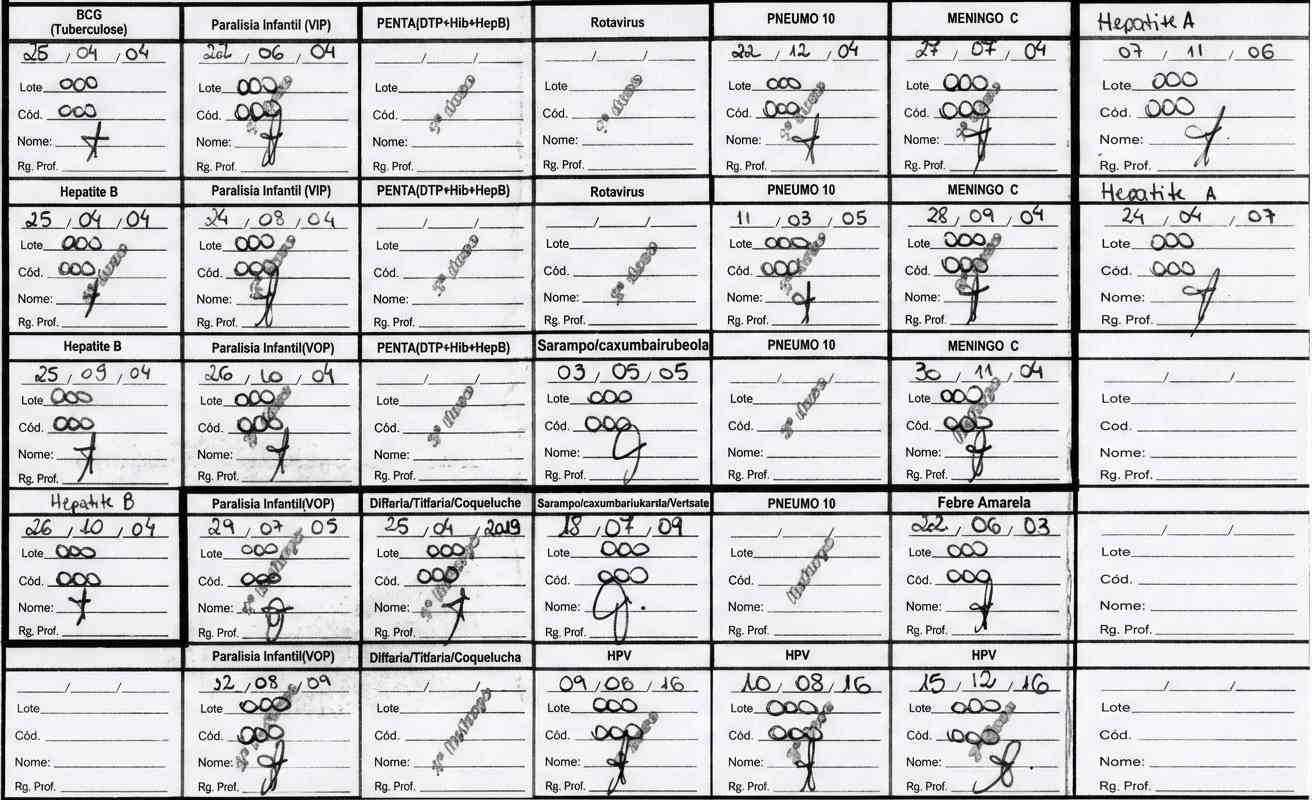 BCG
(Tuberculose)
25 / 04 / 04
Lote 000
Cód. 000
Nome:
Rg. Prof.
Paralisia Infantil (VIP)
22 / 06 / 04
Lote 000
Cód. 000
Nome:
Rg. Prof.
PENTA(DTP+Hib+HepB)
/ /
Lote
Cód.
Nome:
Rg. Prof.
Rotavirus
/ /
Lote
Cód.
Nome:
Rg. Prof.
PNEUMO 10
22 / 12 / 04
Lote 000
Cód. 000
Nome:
Rg. Prof.
MENINGO C
27 / 07 / 04
Lote 000
Cód. 000
Nome:
Rg. Prof.
Hepatite A
07 / 11 / 06
Lote 000
Cód. 000
Nome:
Rg. Prof.
Hepatite B
25 / 04 / 04
Lote 000
Cód. 000
Nome:
Rg. Prof.
Paralisia Infantil (VIP)
24 / 08 / 04
Lote 000
Cód. 000
Nome:
Rg. Prof.
PENTA(DTP+Hib+HepB)
/ /
Lote
Cód.
Nome:
Rg. Prof.
Rotavirus
/ /
Lote
Cód.
Nome:
Rg. Prof.
PNEUMO 10
11 / 03 / 05
Lote 000
Cód. 000
Nome:
Rg. Prof.
MENINGO C
28 / 09 / 04
Lote 000
Cód. 000
Nome:
Rg. Prof.
Hepatite A
24 / 04 / 07
Lote 000
Cód. 000
Nome:
Rg. Prof.
Hepatite B
25 / 09 / 04
Lote 000
Cód. 000
Nome:
Rg. Prof.
Paralisia Infantil(VOP)
26 / 10 / 04
Lote 000
Cód. 000
Nome:
Rg. Prof.
PENTA(DTP+Hib+HepB)
/ /
Lote
Cód.
Nome:
Rg. Prof.
Sarampo/caxumbairubeola
03 / 05 / 05
Lote 000
Cód. 000
Nome:
Rg. Prof.
PNEUMO 10
/ /
Lote
Cód.
Nome:
Rg. Prof.
MENINGO C
30 / 11 / 04
Lote 000
Cód. 000
Nome:
Rg. Prof.
/ /
Lote
Cod.
Nome:
Rg. Prof.
Hepatite B
26 / 10 / 04
Lote 000
Cód. 000
Nome:
Rg. Prof.
Paralisia Infantil(VOP)
29 / 07 / 05
Lote 000
Cód. 000
Nome:
Rg. Prof.
Diffaria/Titfaria/Coqueluche
25 / 04 / 2019
Lote 000
Cód. 000
Nome:
Rg. Prof.
Sarampo/caxumbariukarıla/Vertsate
18 / 07 / 09
Lote 000
Cód. 000
Nome:
Rg. Prof.
PNEUMO 10
/ /
Lote
Cód.
Nome:
Rg. Prof.
Febre Amarela
22 / 06 / 03
Lote 000
Cód. 000
Nome:
Rg. Prof.
/ /
Lote
Cód.
Nome:
Rg. Prof.
/ /
Lote
Cód.
Nome:
Rg. Prof.
Paralisia Infantil(VOP)
12 / 08 / 09
Lote 000
Cód. 000
Nome:
Rg. Prof.
Diffaria/Titfaria/Coquelucha
/ /
Lote
Cód.
Nome:
Rg. Prof.
HPV
09 / 06 / 16
Lote 000
Cód. 000
Nome:
Rg. Prof.
HPV
10 / 08 / 16
Lote 000
Cód. 000
Nome:
Rg. Prof.
HPV
15 / 12 / 16
Lote 000
Cód. 000
Nome:
Rg. Prof.
/ /
Lote
Cód.
Nome:
Rg. Prof.